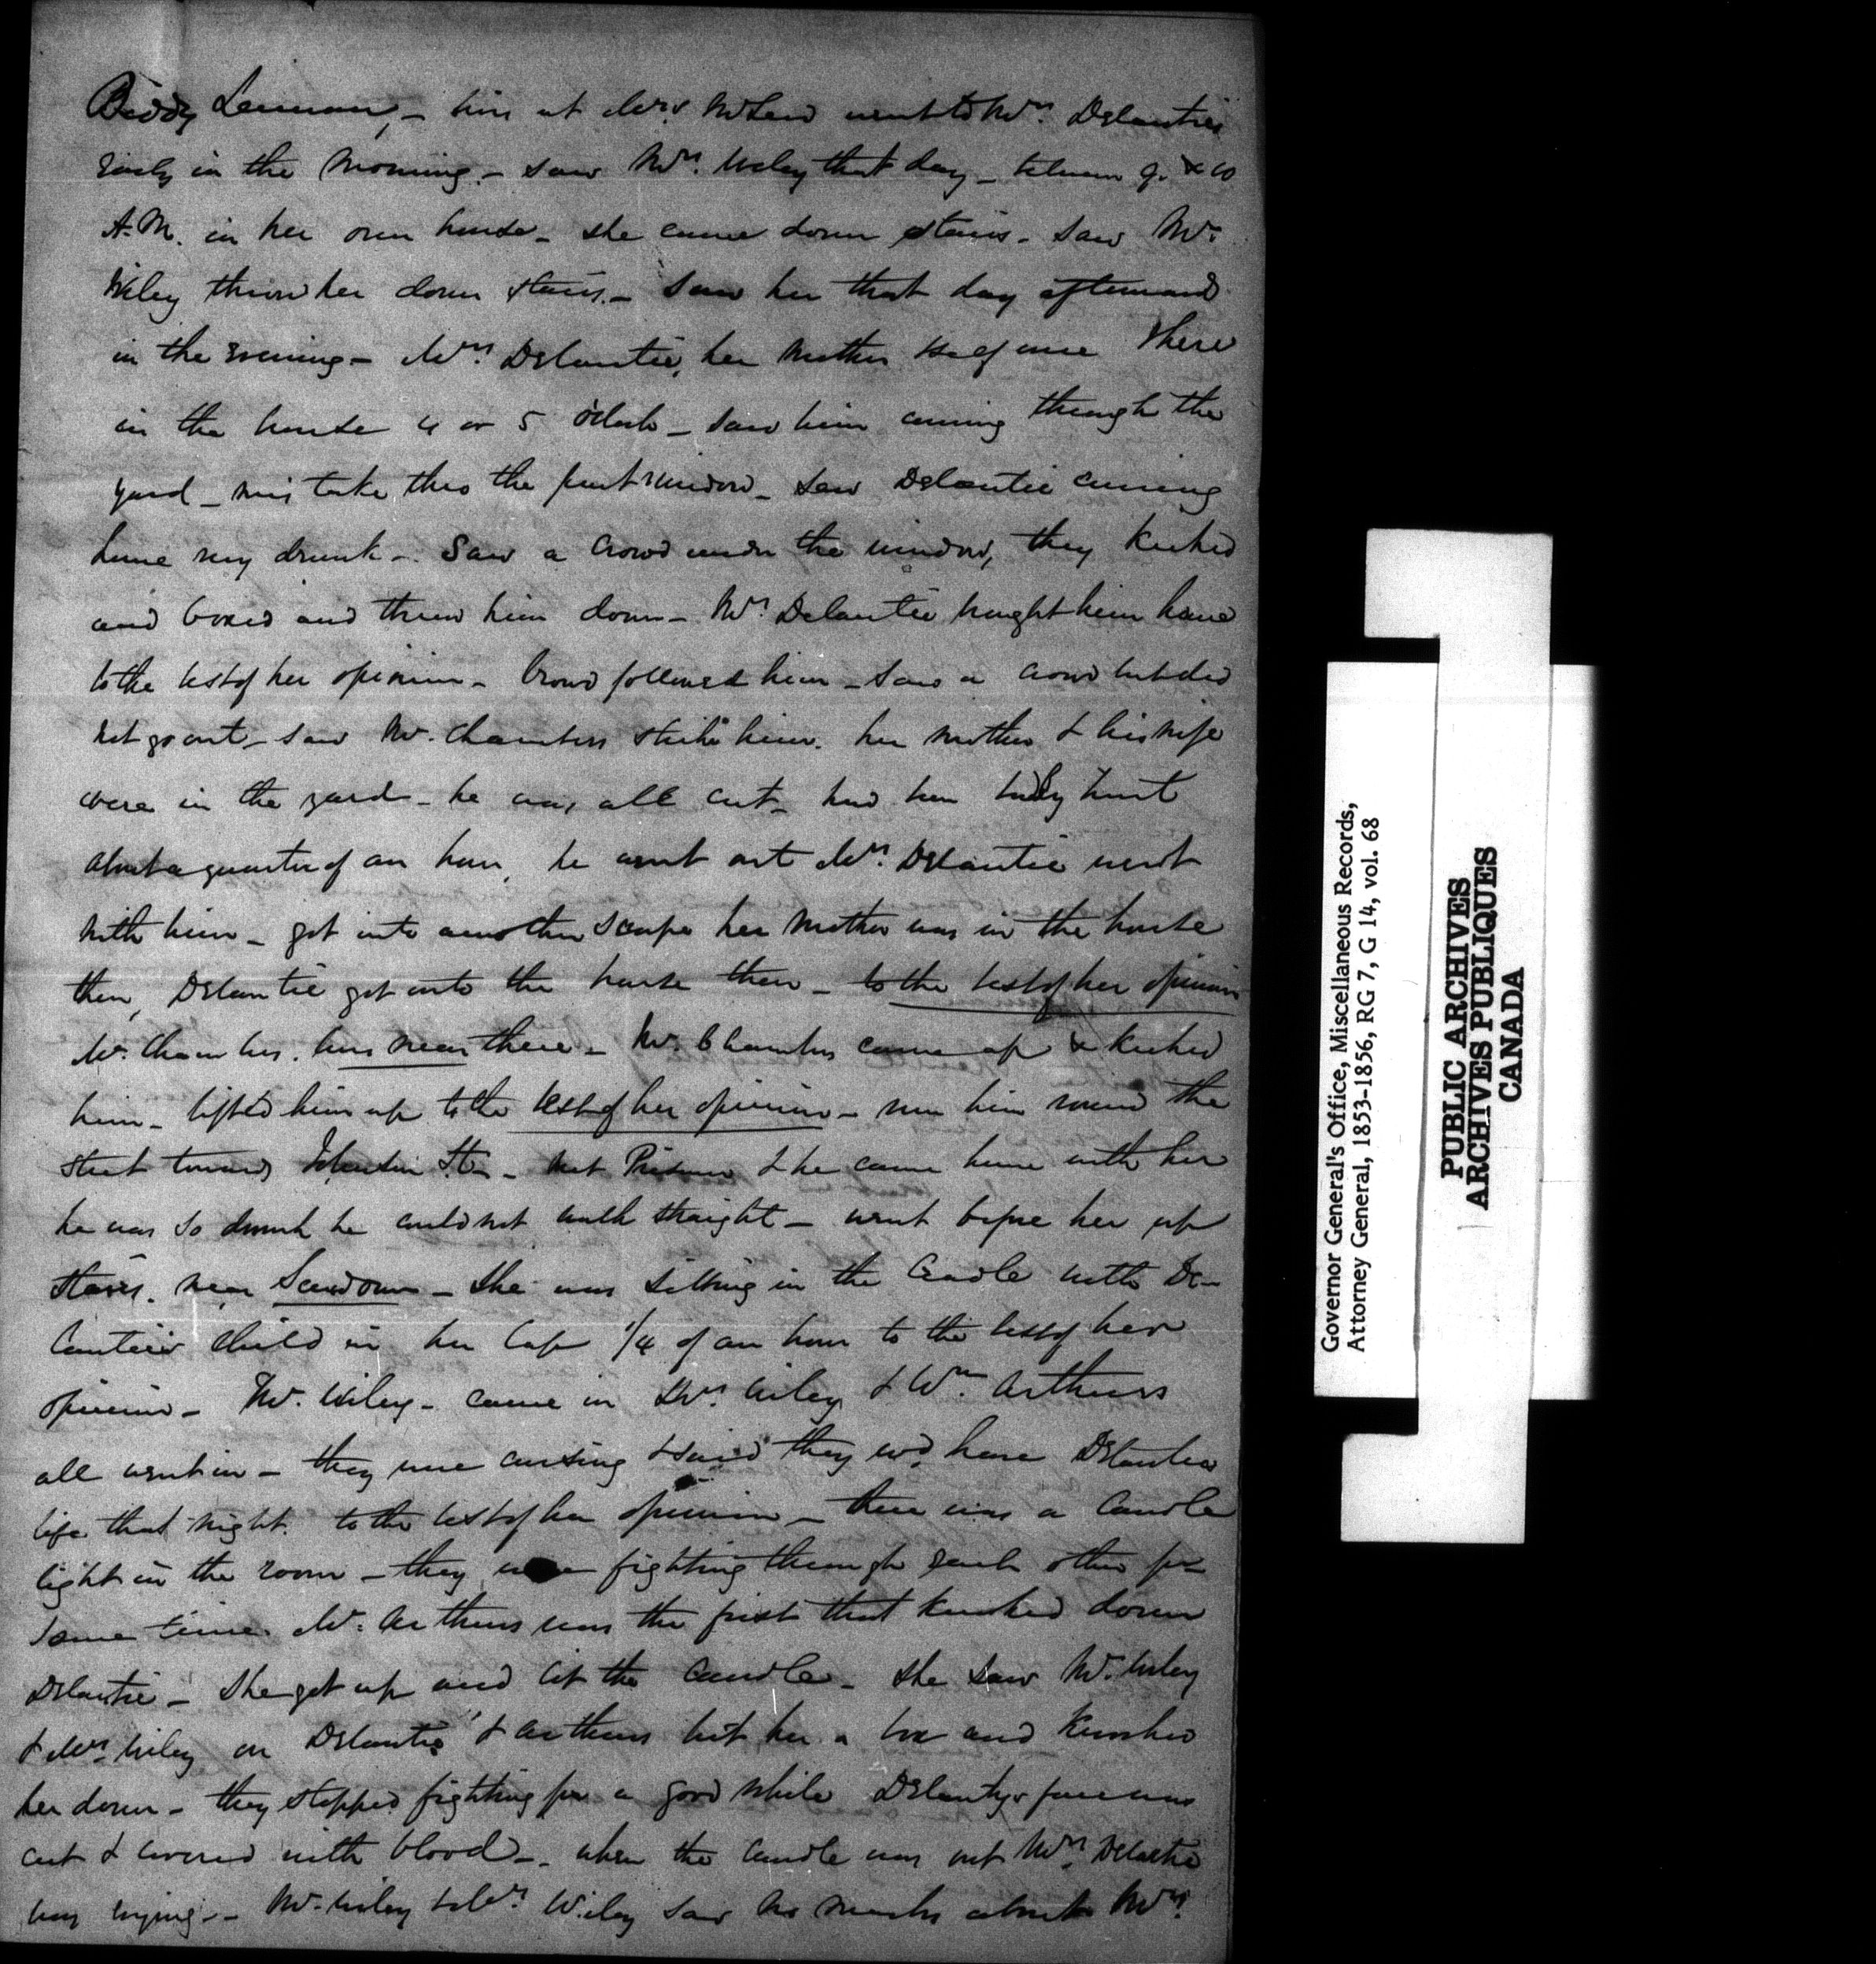 Biddy Lennan, - live at Mrs. went to Mrs. Delanties
Early in the Morning - saw Mrs. Wiley that day - between 9 & 10
A.M. in her own house - she came down stairs - saw Mr.
Wiley throw her down stairs - Saw her that day afterwards
in the Evening - Mrs. Delantie, her Mother were there
in the house 4 or 5 oClock - saw him coming through the
yard - mistake thro the front window - saw Delantie coming
home very drunk - Saw a Crowd under the window, they kicked
and boxed and threw him down - Mrs. Delantie brought him home
to the best of her opinion - Crowd followed him - saw a crowd but did
not go out - saw Mr. Chambers strike him. her mother & his wife
were in the yard - he was all cut - had been badly hurt
About a quarter of an hour, he went out Mrs. Delantie went
with him - got into another scrape her Mother was in the house
then, Delantie got into the house then - to the best of her opinion
Mr. Chambers. was near there - Mr. Chambers came up & kicked
him - lifted him up to the best of her opinion - run him round the
street towards St. - met Prisoner & he came home with her
he was so drunk he could not walk straight - went before her up
Stairs. near - She was sitting in the Cradle with De-
lanties Child in her lap 1/4 of an hour to the best of her
opinion - Mr. Wiley - came in Mrs. Wiley & Wm. Arthurs
all went in - they were cursing & said they wd. have Delanties
life that night. to the best of her opinion - there was a Candle
light in the room - they were fighting through each other for
some time. Mr. Arthurs was the first that knocked down
Delantie - She got up and lit the Candle - She saw Mr. Wiley
& Mrs. Wiley on Delantie & Arthurs hit her a box and knocked
her down - they stopped fighting for a good while Delantys face was
cut & covered with blood - when the Candle was out Mrs. Delantie
was crying - Mr. Wiley & Mrs. Wiley saw no marks about Mrs.
Governor General's Office, Miscellaneous Records,
Attorney General, 1853-1856, RG 7, G 14, vol. 68
PUBLIC ARCHIVES
ARCHIVES PUBLIQUES
CANADA